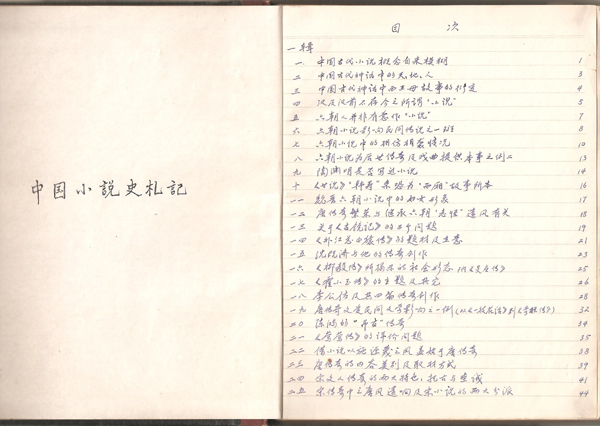 中国小説史札記
目 次
一辑
一 中国古代小说概念自来模糊 1
二 中国古代神话中的天、地、人 3
三 中国古代神话中西王母故事的衍变 4
四 汉及汉前不存今之所谓“小说” 5
五 六朝人并非有意作“小说” 7
六 六朝小说影响民间传说之一班 8
七 六朝小说中的模仿相袭情况 10
八 六朝小说为后世传奇及戏曲提供本事之例二 13
九 陶渊明是否写过小说 14
十 《世说》“拜寿”条 故事所本 16
一一 魏晋六朝小说中的妇女形象 17
一二 唐传奇繁荣与继承六朝“志怪”遗风有关 18
一三 关于《古镜记》的二个问题 19
一四 《补江总白猿传》的题材及主意 21
一五 沈既济与他的传奇创作 23
一六 《柳毅传》所揭示的社会形态 附《灵应传》 25
一七 《霍小玉传》的主题及其它 26
一八 李公佐及其四篇传奇创作 28
一九 唐传奇及受民间文学影响之一例(从《一枝花话》到《李娃传》) 32
二〇 陈鸿的“ ”传奇 34
二一 《莺莺传》的评价问题 35
二二 借小说以施 之风盖始于唐传奇 38
二三 唐传奇的四大类别及取材方式 39
二四 宋文人传奇的两大特色:托古与垂诫 41
二五 宋传奇中之唐风遗响及宋小说的两大分派 44